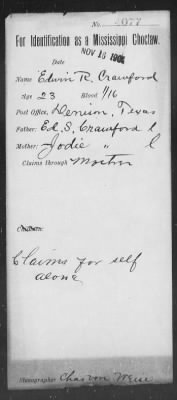 No. 4077
For Identification as a Mississippi Choctaw.
NOV 16 1901
Date
Name Edwin R. Crawford
Age 23 Blood 1/16
Post Office, Denison, Texas
Father: Ed. S. Crawford l
Mother: Jodie " l
Claims through Mother
Children:
Claims for self
alone
Stenographer Chas von Weise